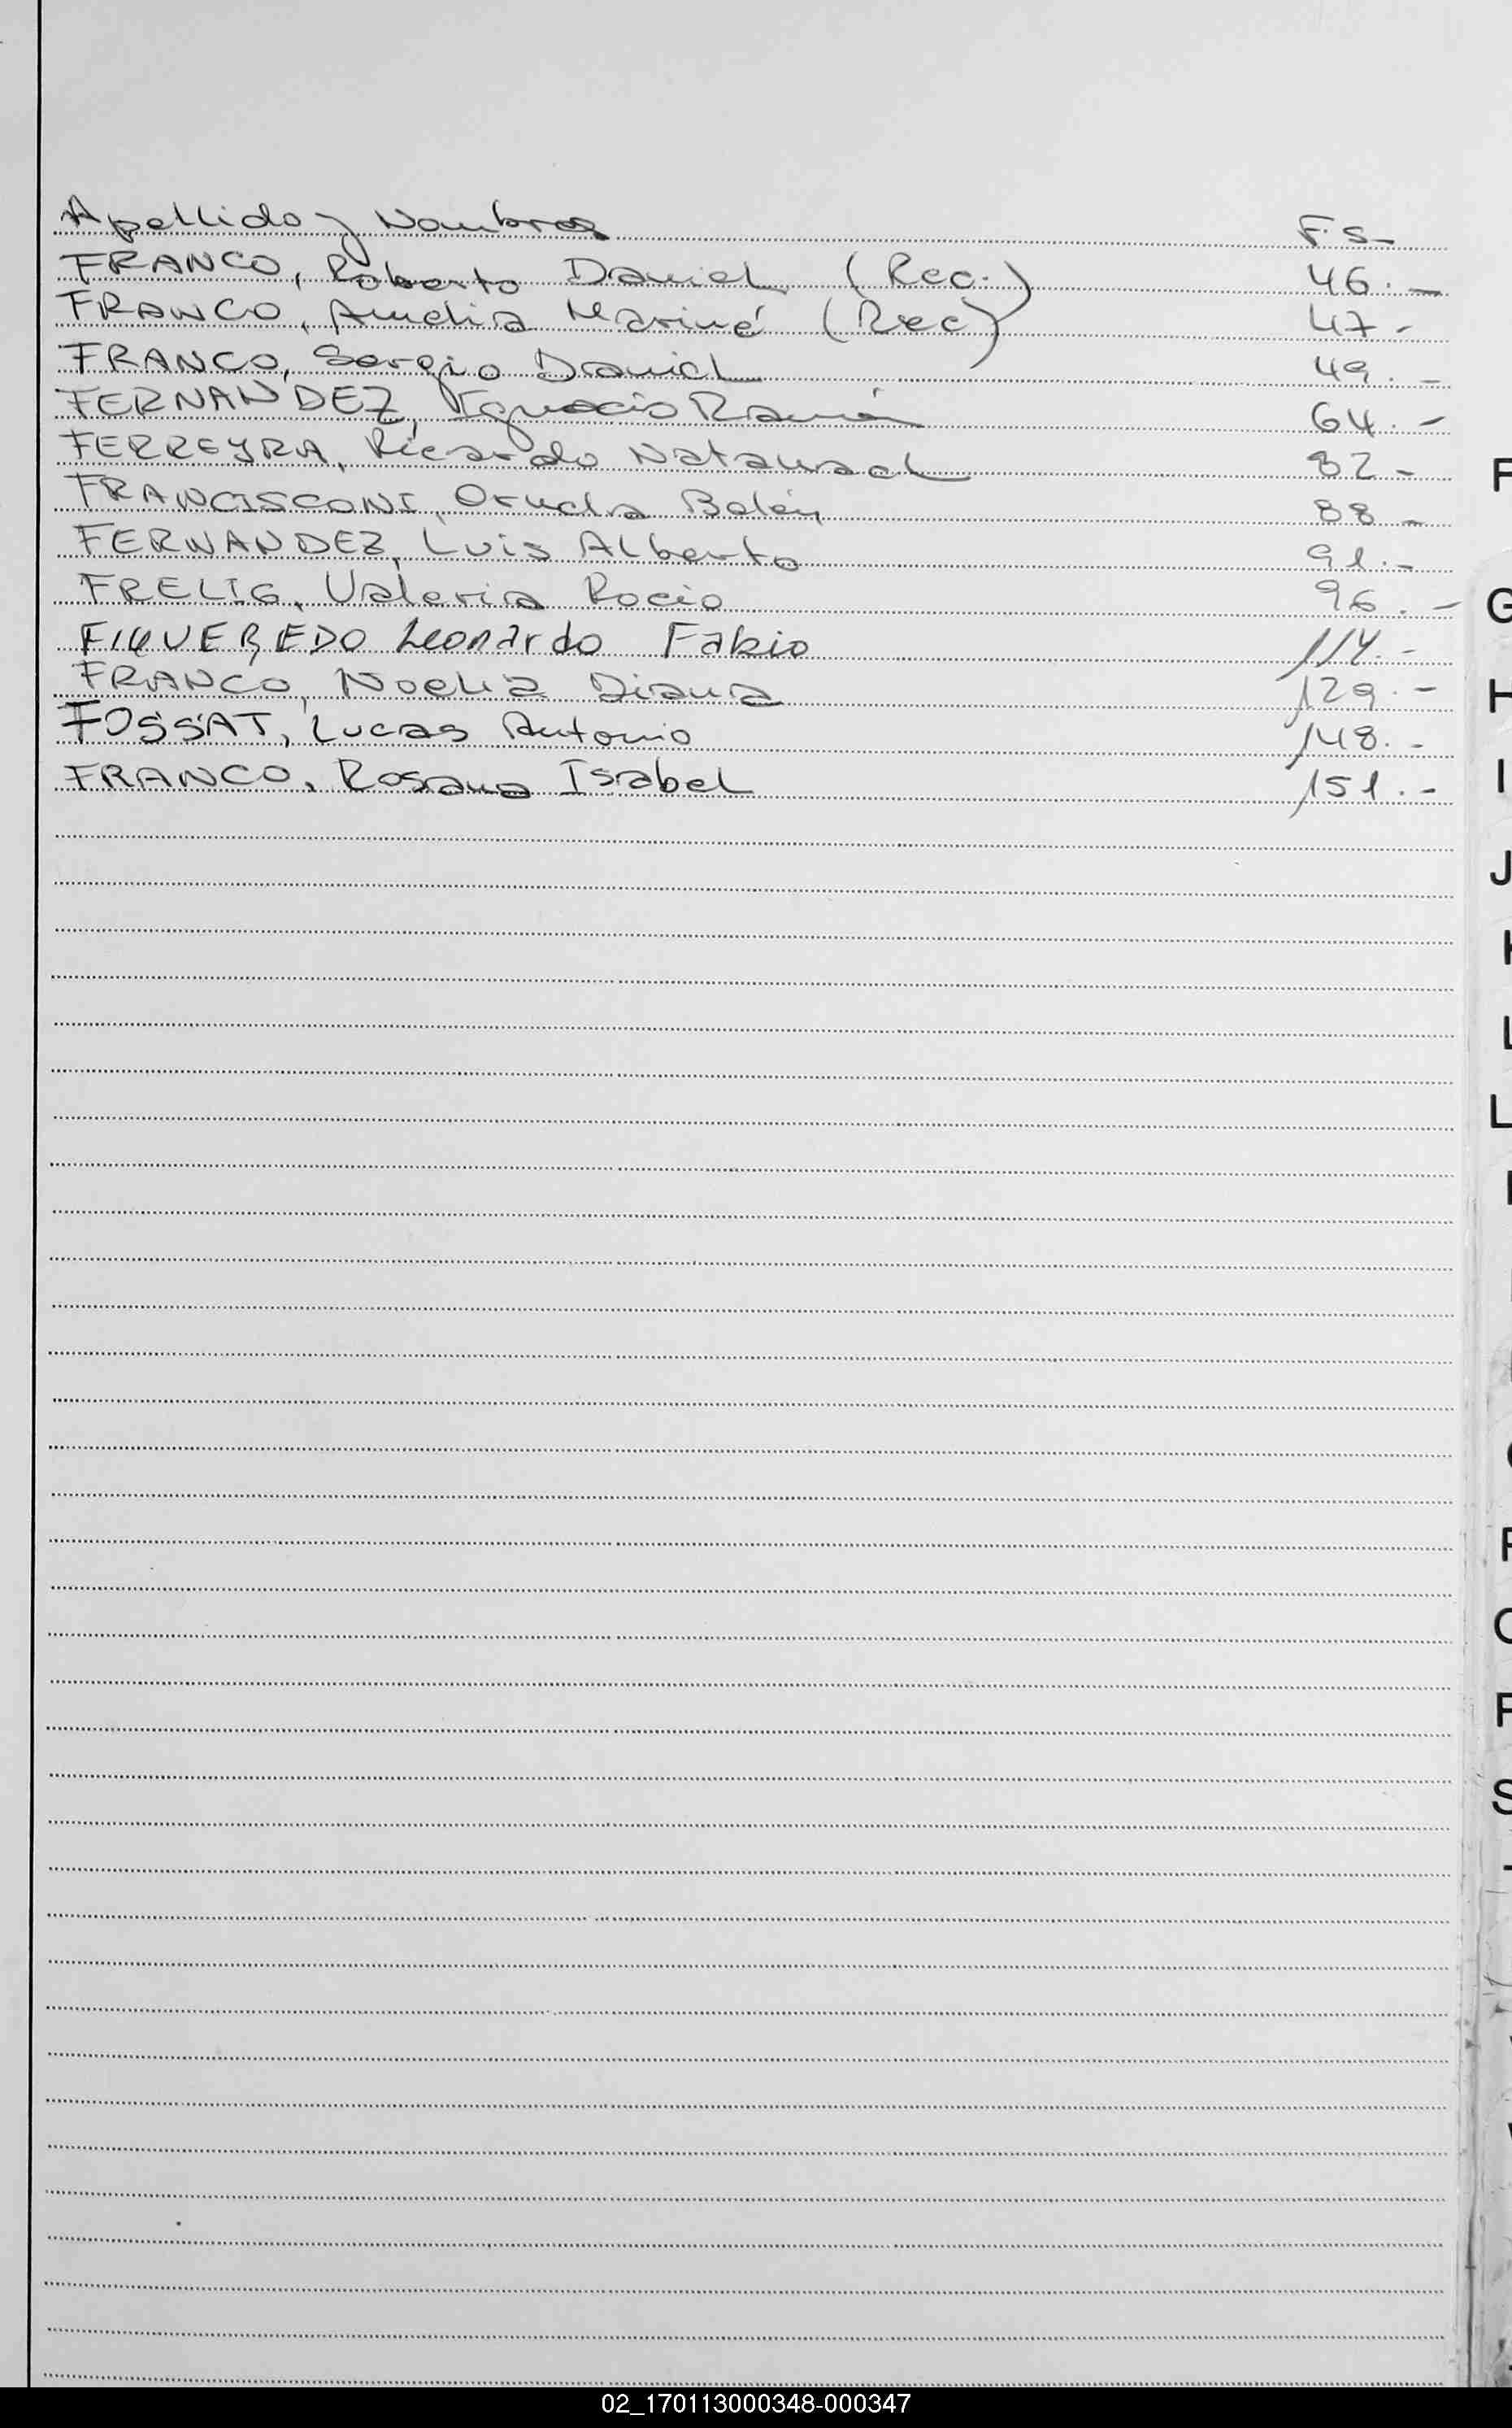 Apellido y Nombres F.S-
FRANCO, Roberto Daniel (Rec.) 46.-
FRANCO, Amelia Mariné (Rec) 47-
FRANCO, Sergio Daniel 49.-
FERNANDEZ, Ignacio Ramón 64.-
FERREYRA, Ricardo Natanael 82-
FRANCISCONI, Ornela Belén 88-
FERNANDEZ, Luis Alberto 91.-
FRELIG, Valeria Rocio 96.-
FIGUEREDO Leonardo Fabio 114.-
FRANCO, Noelia Diana 129.-
FOSSAT, Lucas Antonio 148.-
FRANCO, Rosana Isabel 151.-
F
G
H
I
J
K
L
L
P
Q
R
S
02_170113000348-000347